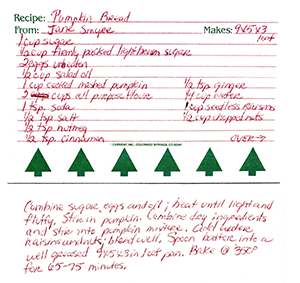 Recipe: Pumpkin Bread
From: Jane Smyee Makes: 9x5x3
loaf
1 cup sugar
1/2 cup firmly packed light brown sugar
2 eggs unbeaten
1/2 cup salad oil
1 cup cooked mashed pumpkin 1/2 tsp. ginger
2 cups all purpose flour 1/4 cup water
1 tsp. soda 1 cup seedless raisins
1/2 tsp salt 1/2 cup chopped nuts
1/2 tsp nutmeg
1/2 tsp. cinnamon OVER→
©CURRENT, INC., COLORADO SPRINGS, CO 80941
Combine sugar, eggs and oil; beat until light and
fluffy. Stir in pumpkin. Combine dry ingredients
and stir into pumpkin mixture. Add water
raisins and nuts; blend well. Spoon batter into a
well greased 9x5x3 in loaf pan. Bake @ 350°
for 65-75 minutes.